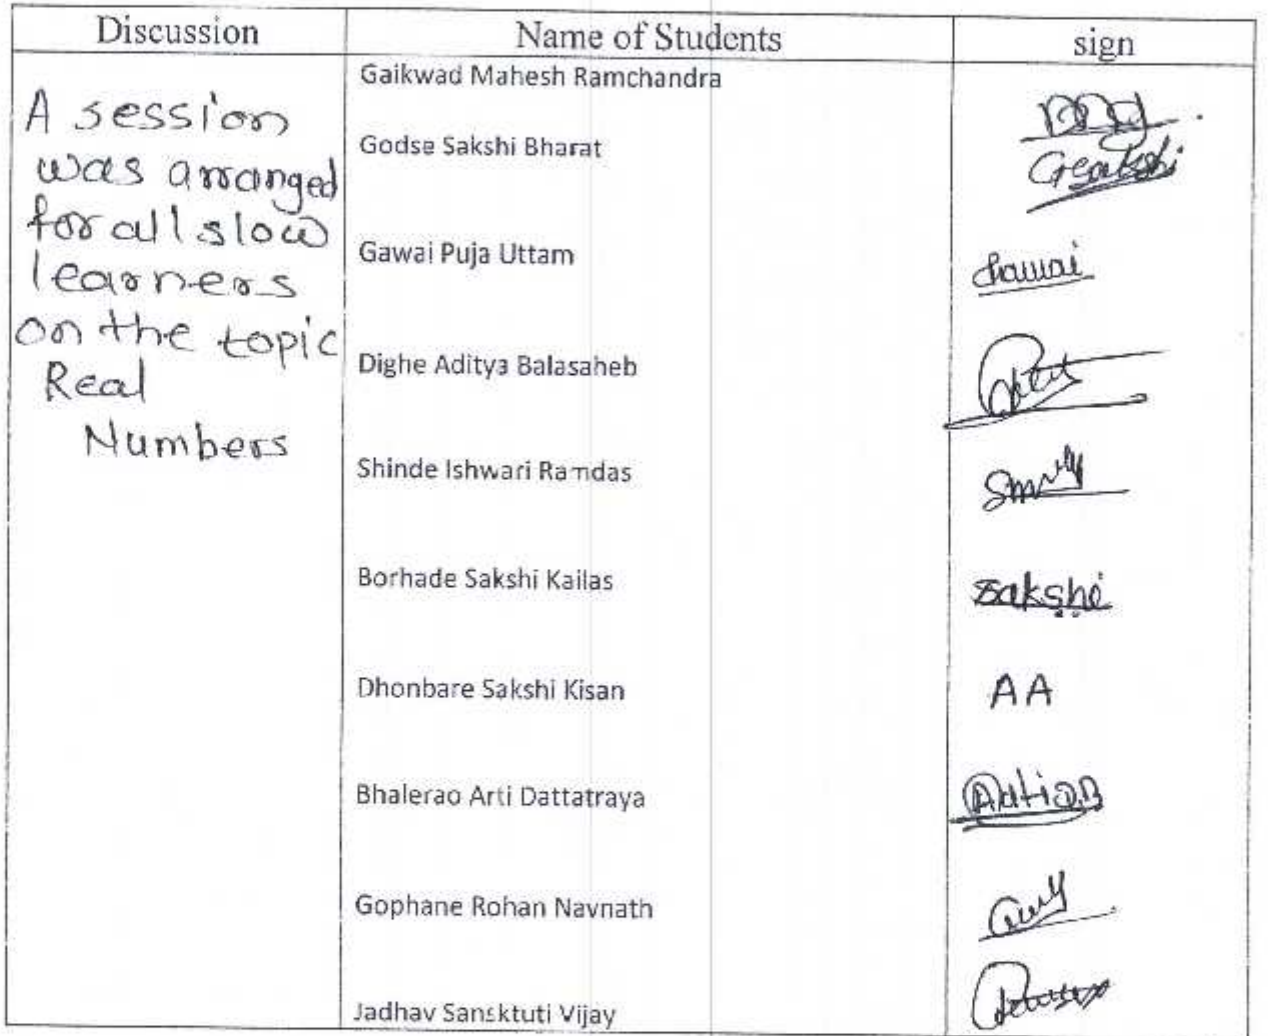 Discussion Name of Students sign
A session
was arranged
for all slow
learners
on the topic
Real
Numbers
Gaikwad Mahesh Ramchandra
Godse Sakshi Bharat
Gawai Puja Uttam
Dighe Aditya Balasaheb
Shinde Ishwari Ramdas
Borhade Sakshi Kailas sakshi
Dhonbare Sakshi Kisan AA
Bhalerao Arti Dattatraya
Gophane Rohan Navnath
Jadhav Sansktuti Vijay